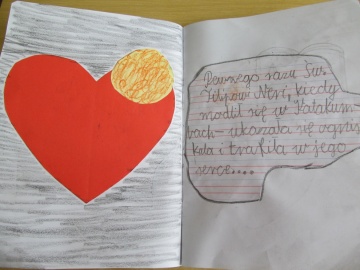 Pewnego razu Św.
Filipowi Neri, kiedy
modlił się w Katakum
bach - ukazała się ognista
kula i trafiła w jego
serce....